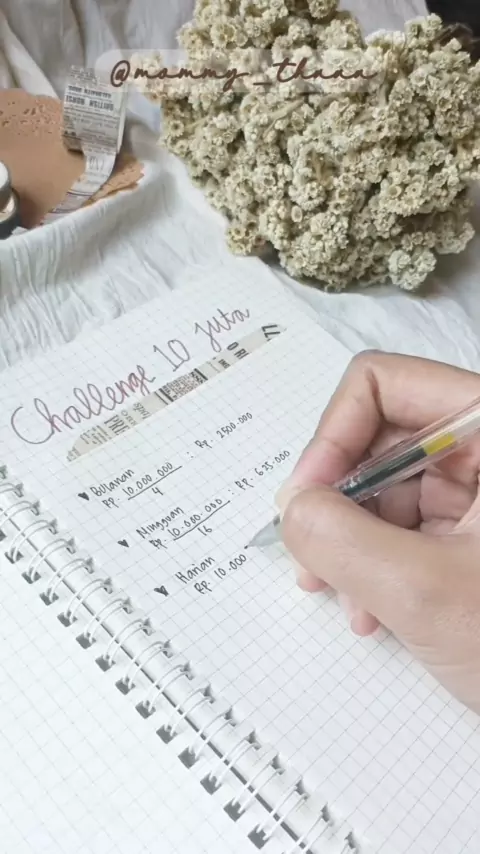 @mommy_thaaa
Challenge 10 juta
♥ Bulanan
Rp. 10.000.000 : Rp. 2500.000
4
♥ Mingguan
Rp. 10.000.000 : Rp. 625.000
16
♥ Harian
Rp. 10.000